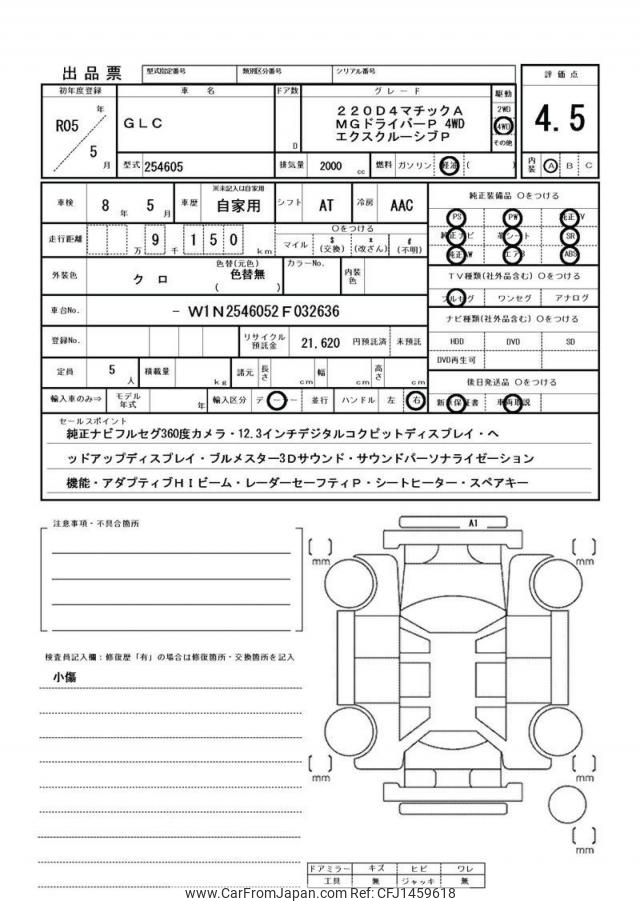 出品票 型式指定番号 類別区分番号 シリアル番号 評価点
初年度登録 車名 ドア数 グレード 駆動
R05 年 5 月
GLC
D
220D4マチックA
MGドライバーP 4WD
エクスクルーシブP
2WD
4WD
その他
4.5
型式 254605 排気量 2000 cc 燃料 ガソリン 軽油 ( )
内装 A B C
車検 8 年 5 月 車歴 ※未記入は自家用 自家用 シフト AT 冷房 AAC
純正装備品 ○をつける
PS PW 純正TV
純正ナビ 革シート SR
純正AW エアB ABS
走行距離 万 9 千 1 5 0 km
○をつける
マイル $(交換) x(改ざん) #(不明)
TV種類(社外品含む) ○をつける
フルセグ ワンセグ アナログ
外装色 クロ 色替(元色) 色替無 ( ) カラーNo. 内装色
車台No. - W1N2546052F032636
ナビ種類(社外品含む) ○をつける
HDD DVD SD
DVD再生可
登録No. リサイクル預託金 21,620 円預託済 未預託
定員 5 人 積載量 kg 諸元 長さ cm 幅 cm 高さ cm
後日発送品 ○をつける
新車保証書 車両取説
輸入車のみ⇒ モデル年式 年 輸入区分 ディーラー 並行 ハンドル 左 右
セールスポイント
純正ナビフルセグ360度カメラ・12.3インチデジタルコクピットディスプレイ・ヘ
ッドアップディスプレイ・ブルメスター3Dサウンド・サウンドパーソナライゼーション
機能・アダプティブHIビーム・レーダーセーフティP・シートヒーター・スペアキー
注意事項・不具合箇所
A1
[ ] mm
[ ] mm
検査員記入欄:修復歴「有」の場合は修復箇所・交換箇所を記入
小傷
[ ] mm
[ ] mm
[ ] mm
ドアミラー キズ ヒビ ワレ
工具 無 ジャッキ 無
www.CarFromJapan.com CFJ1459618